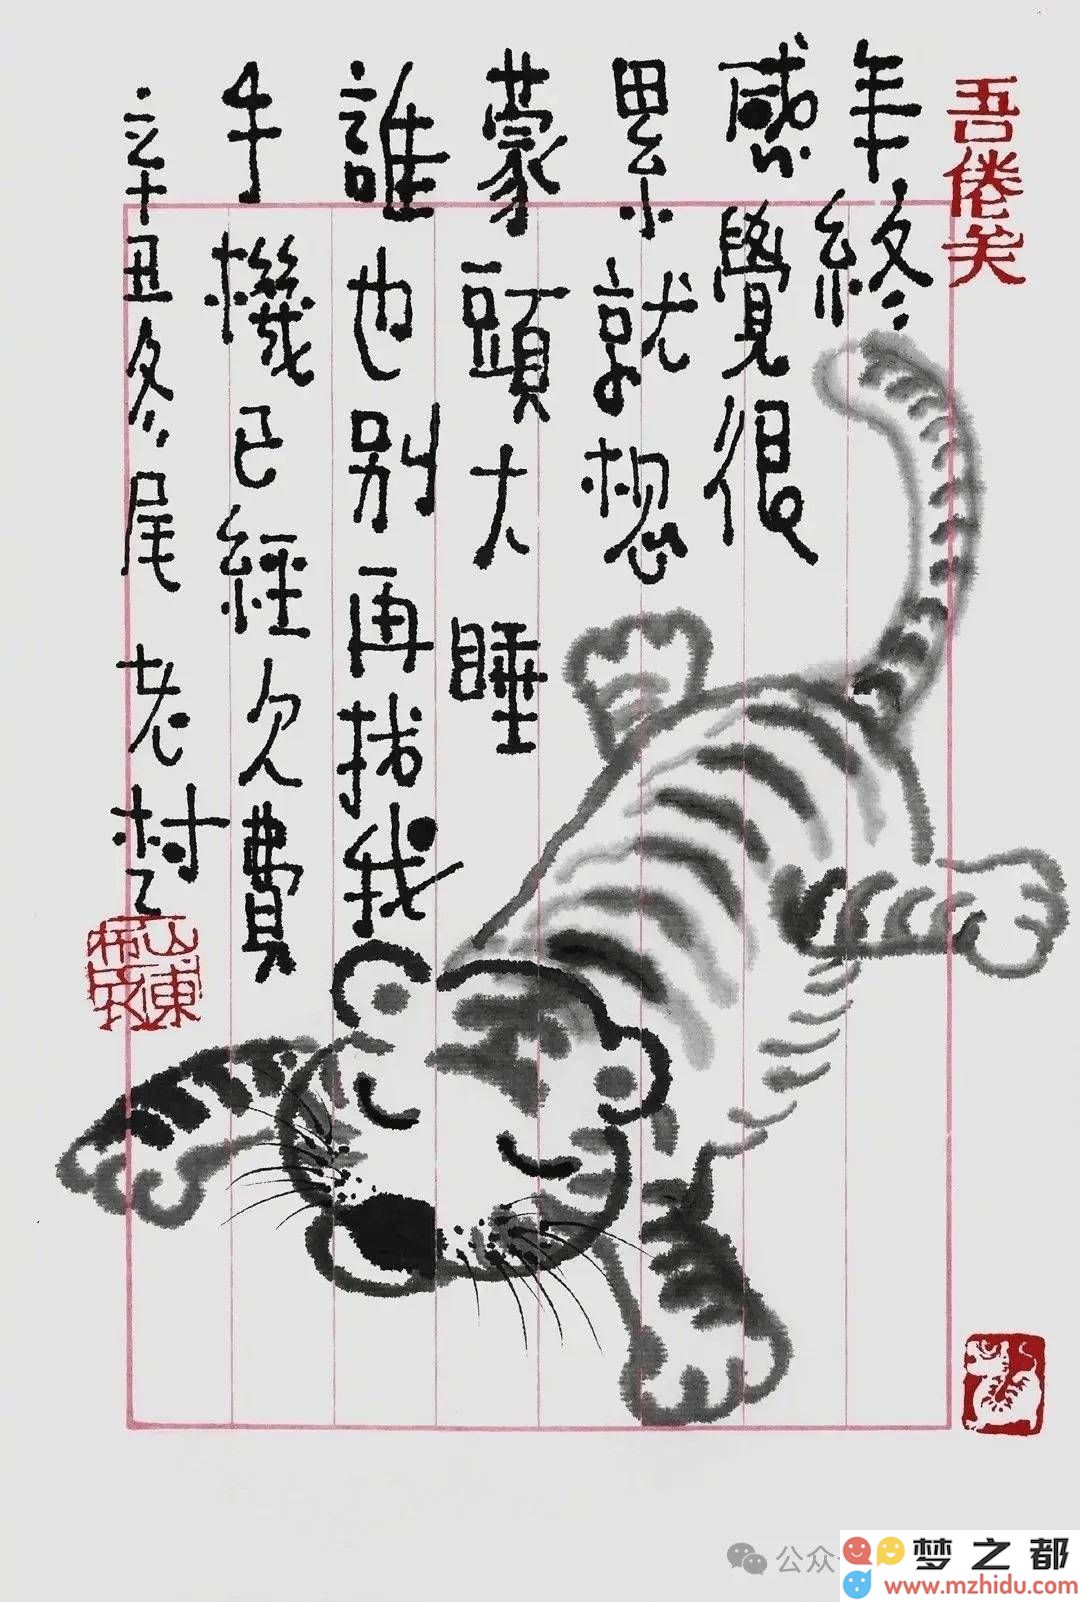 吾倦矣
年終
感覺很
累就想
蒙頭大睡
誰也别再找我
手機已經欠費
辛丑冬尾老村
山東
公众
梦之都
www.mzhidu.com